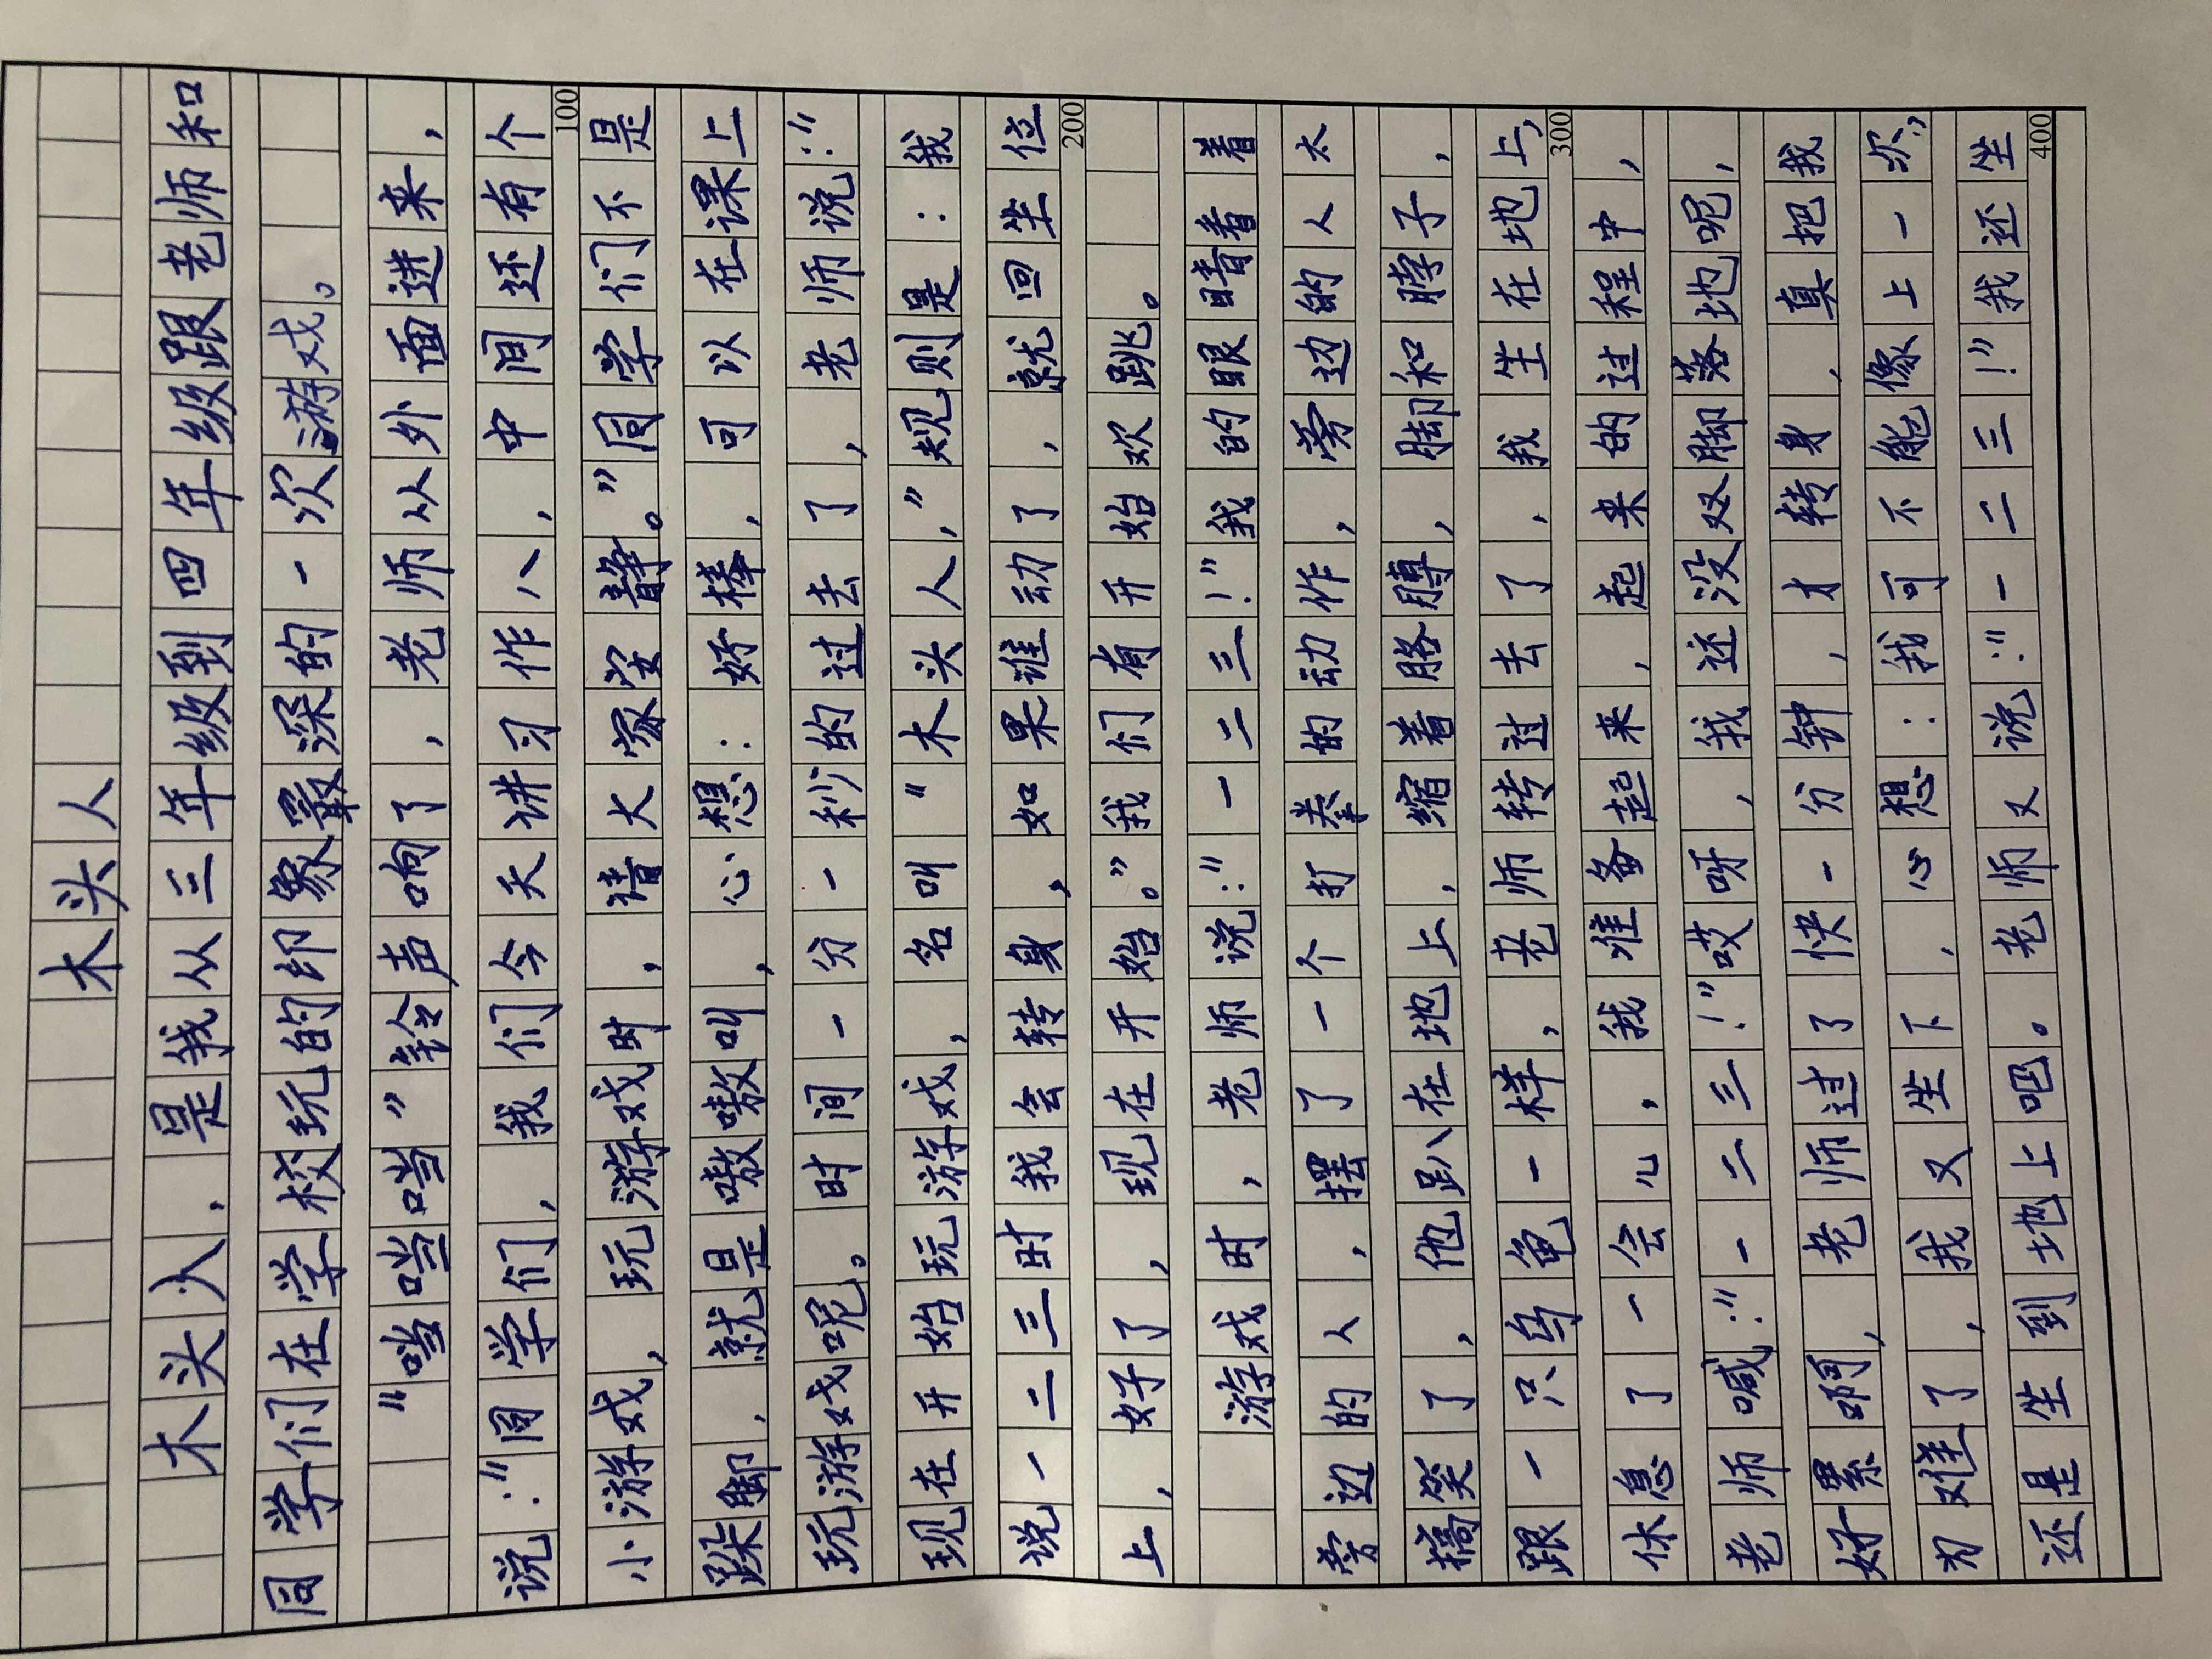 木头人
木头人，是我从三年级到四年级跟老师和
同学们在学校玩的印象最深的一次游戏。
“当当当”铃声响了，老师从外面进来，
说：“同学们，我们今天讲习作八，中间还有个
100
小游戏，玩游戏时，请大家安静。”同学们不是
跺脚，就是嗷嗷叫，心想：好棒，可以在课上
玩游戏呢。时间一分一秒的过去了，老师说：“
现在开始玩游戏，名叫“木头人，”规则是：我
说一二三时我会转身，如果谁动了，就回坐位
200
上，好了，现在开始。”我们有开始欢跳。
游戏时，老师说：“一二三！”我的眼睛看着
旁边的人，摆了一个打拳的动作，旁边的人太
搞笑了，他趴在地上，缩着胳膊，脚和脖子，
跟一只乌龟一样，老师转过去了，我坐在地上，
300
休息了一会儿，我准备起来，起来的过程中，
老师喊：“一二三！”哎呀，我还没双脚落地呢，
好累啊，老师过了快一分钟，才转身，真把我
为难了，我又坐下，心想：我可不能像上一次，
还是坐到地上吧。老师又说：“一二三！”我还坐
400